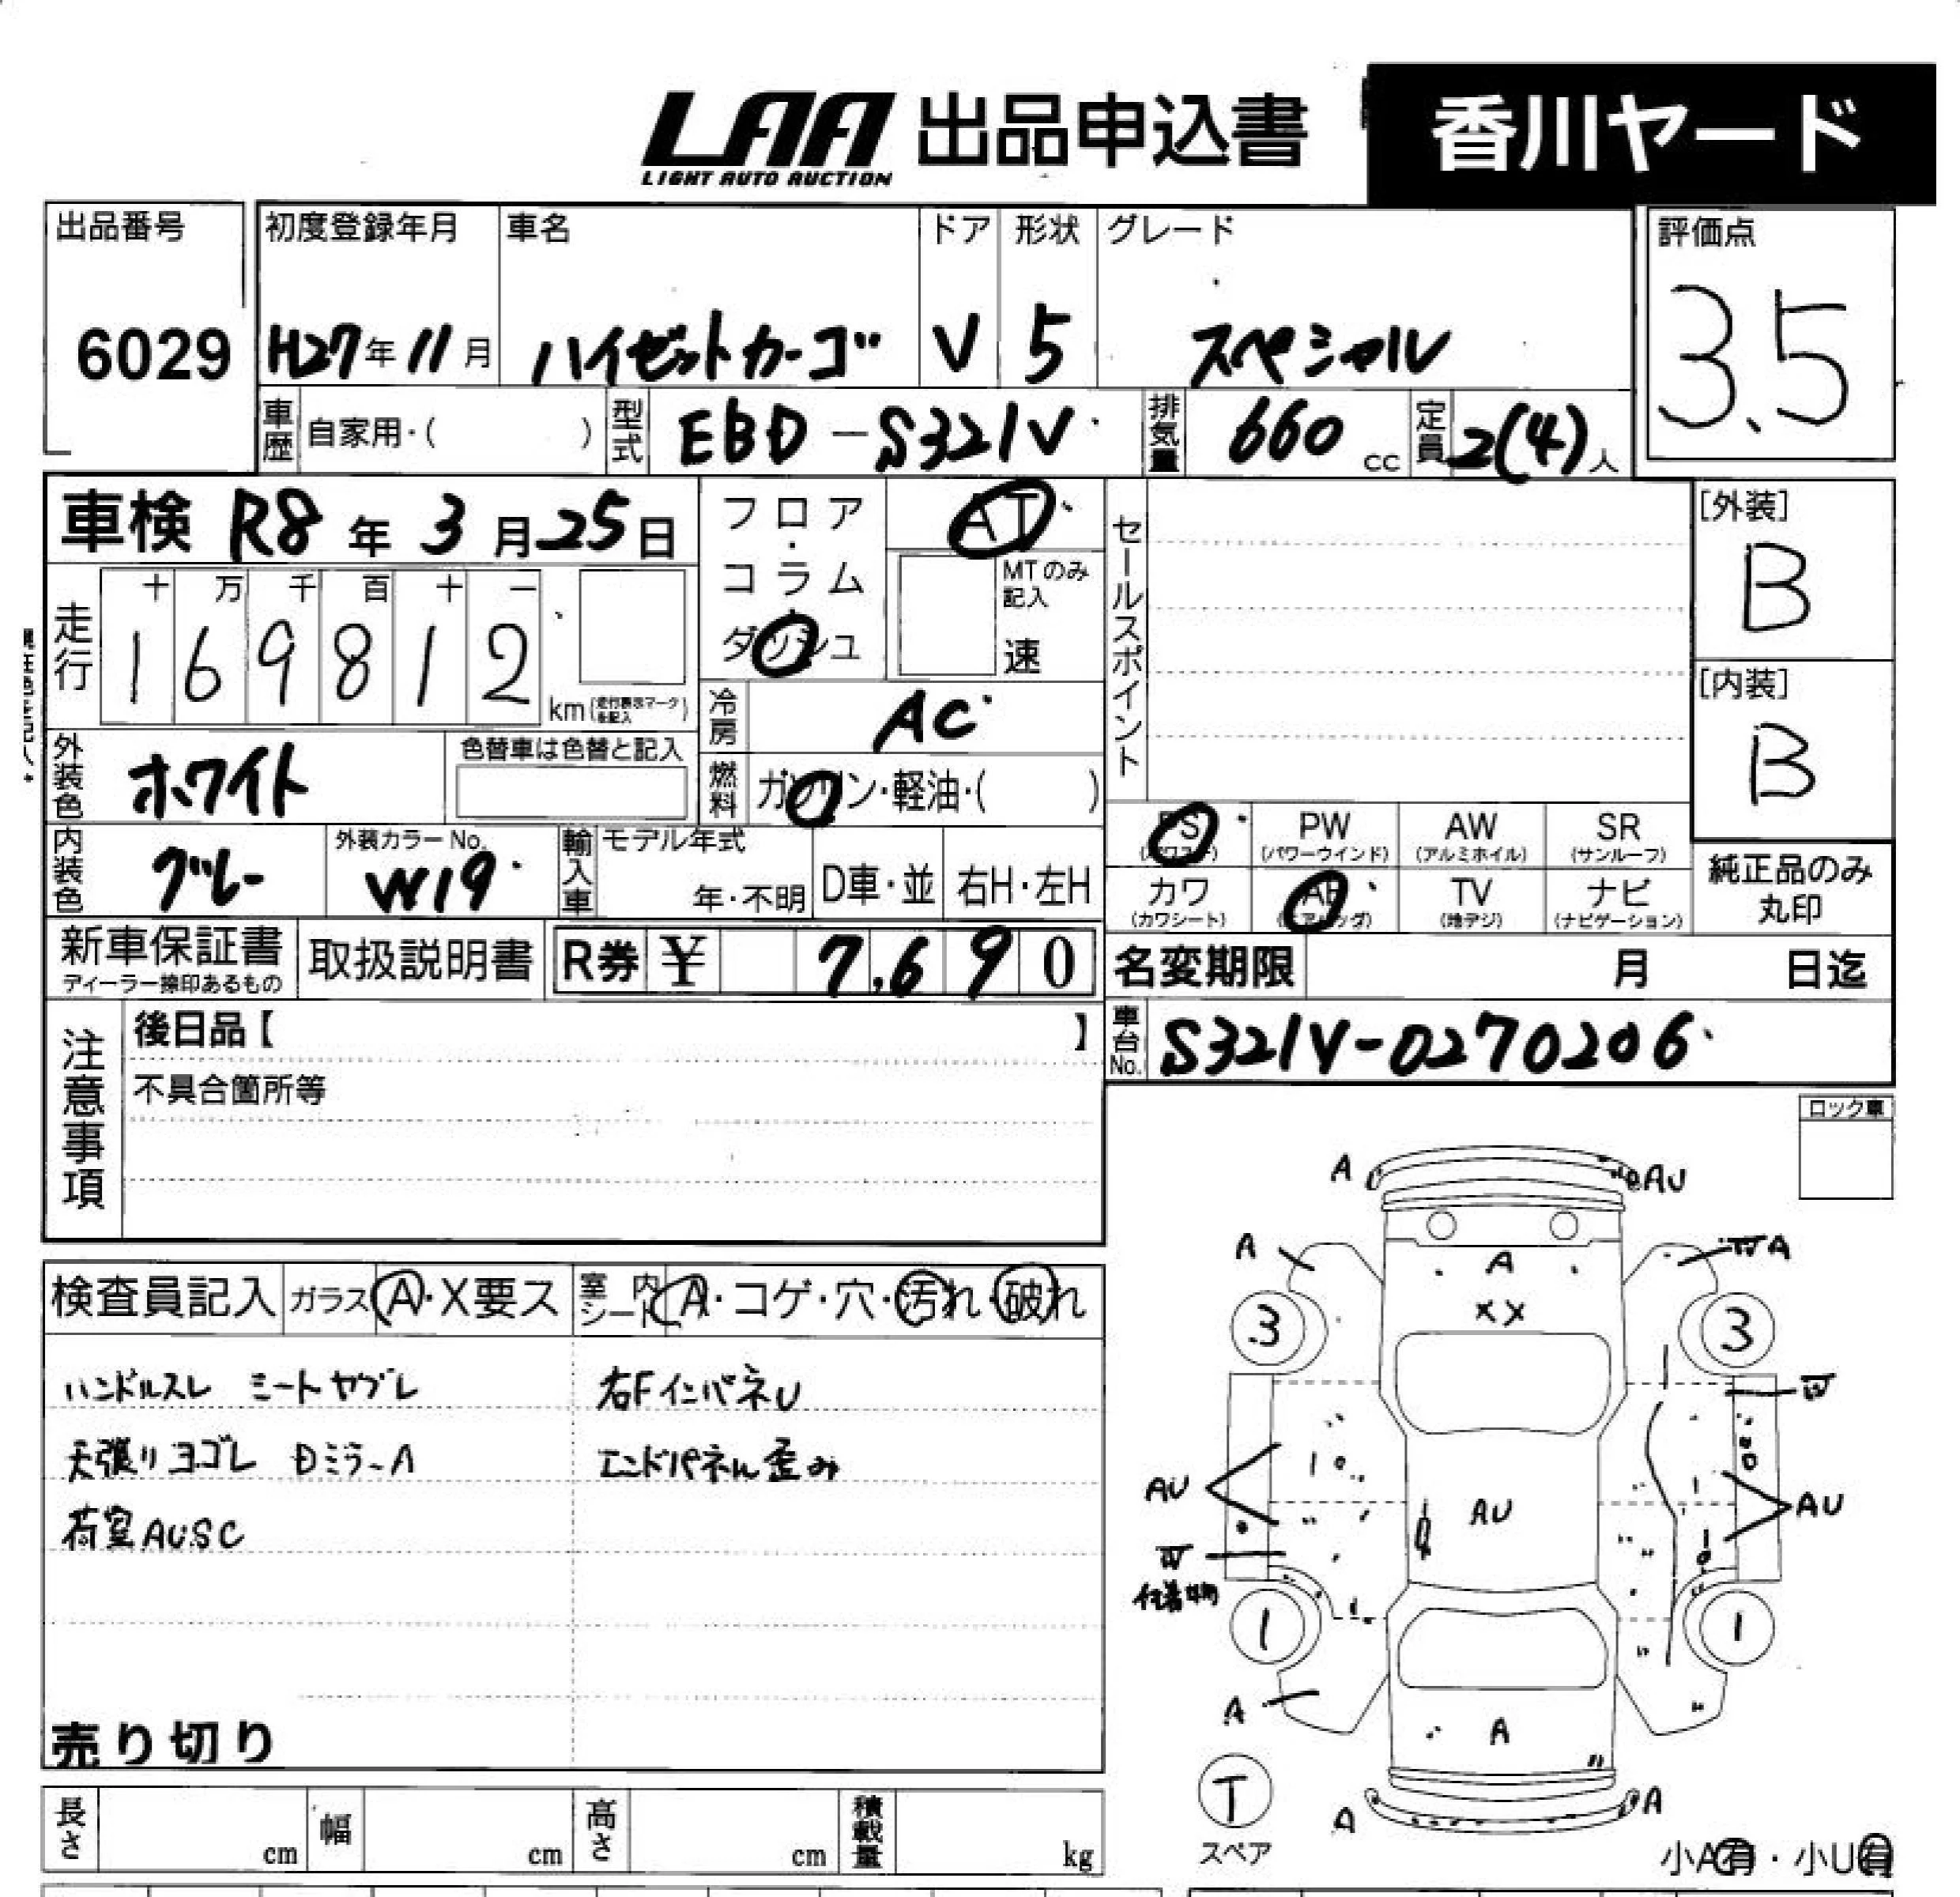 LAA 出品申込書 香川ヤード
LIGHT AUTO AUCTION
出品番号 初度登録年月 車名 ドア 形状 グレード 評価点
6029 H27年11月 ハイゼットカーゴ V 5 スペシャル 3.5
車歴 自家用・( ) 型式 EBD-S321V 排気量 660 cc 定員 2(4)人
車検 R8年3月25日 フロア・コラム・ダッシュ AT
MTのみ記入 速
セールスポイント
[外装] B
[内装] B
走行 十 万 千 百 十 一
1 6 9 8 1 2 km
冷房 AC
外装色 ホワイト 色替車は色替と記入 燃料 ガソリン・軽油・( )
PS PW AW SR
(パワステ) (パワーウインド) (アルミホイル) (サンルーフ)
内装色 グレー 外装カラーNo. W19 輸入車 モデル年式 年・不明 D車・並 右H・左H
カワ AB TV ナビ
(カワシート) (エアバッグ) (地デジ) (ナビゲーション)
純正品のみ
丸印
新車保証書 取扱説明書 R券 ¥ 7,690 名変期限 月 日迄
ディーラー捺印あるもの
注意事項 後日品【 】 車台No. S321V-0270206
不具合箇所等
ロック車
A AU
A W A
A
XX
3 3
W
AU AU AU
W
1 1
A A
A A
T
スペア
小A有・小U有
検査員記入 ガラス A・X要ス 室内シート A・コゲ・穴・汚れ・破れ
ハンドルスレ シートヤブレ 右FインパネU
天張りヨゴレ DミラーA エンドパネル歪み
荷室AUSC
売り切り
長さ cm 幅 cm 高さ cm 積載量 kg